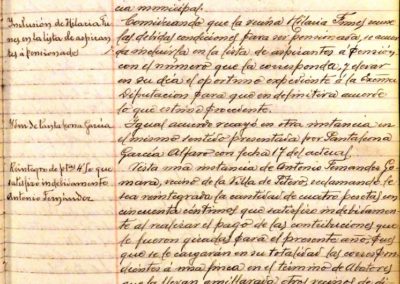 cia municipal.
Inclusión de Hilaria Fu-
nes en la lista de aspiran-
tes á pensionado
Considerando que la vecina Hilaria Funes reune
las debidas condiciones para ser pensionada, se acuer-
da incluirla en la lista de aspirantes á pensión
con el número que la corresponda, y elevar
en su dia el oportuno expediente á la Excma
Diputacion para que en definitiva acuerde
lo que estime procedente.
Idem de Pantaleona García
Igual acuerdo recayó en otra instancia en
el mismo sentido presentada por Pantaleona
García Alfaro con fecha 17 del actual.
Reintegro de ptas 4'50 que
satisfizo indebidamente
Antonio Fernández
Vista una instancia de Antonio Fernandez Go-
mara, vecino de la Villa de Fitero, reclamando le
sea reintegrada la cantidad de cuatro pesetas con
cincuenta centimos que satisfizo indebidamen-
te al realizar el pago de las contribuciones que
le fueron giradas para el presente año, pues
que se le cargaron en su totalidad las correspon-
dientes á una finca en el término de
que la llevan amillarada otros vecinos de di-